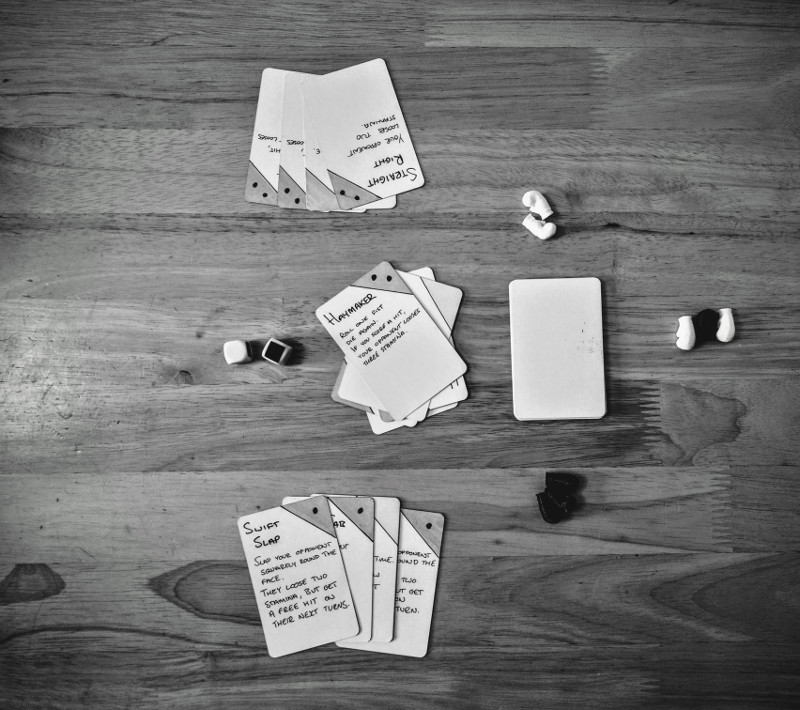 STRAIGHT
RIGHT
YOUR OPPONENT
LOOSES TWO
STAMINA.
HIT,
LOOSES
HAYMAKER
ROLL ONE FIST
DIE AGAIN.
IF YOU SCORE A HIT,
YOUR OPPONENT LOOSES
THREE STAMINA.
SWIFT
SLAP
SLAP YOUR OPPONENT
SQUARELY ROUND THE
FACE.
THEY LOOSE TWO
STAMINA, BUT GET
A FREE HIT ON
THEIR NEXT TURNS.
TIME.
OPPONENT
OUND THE
TWO
UT GET
ON
TURN.